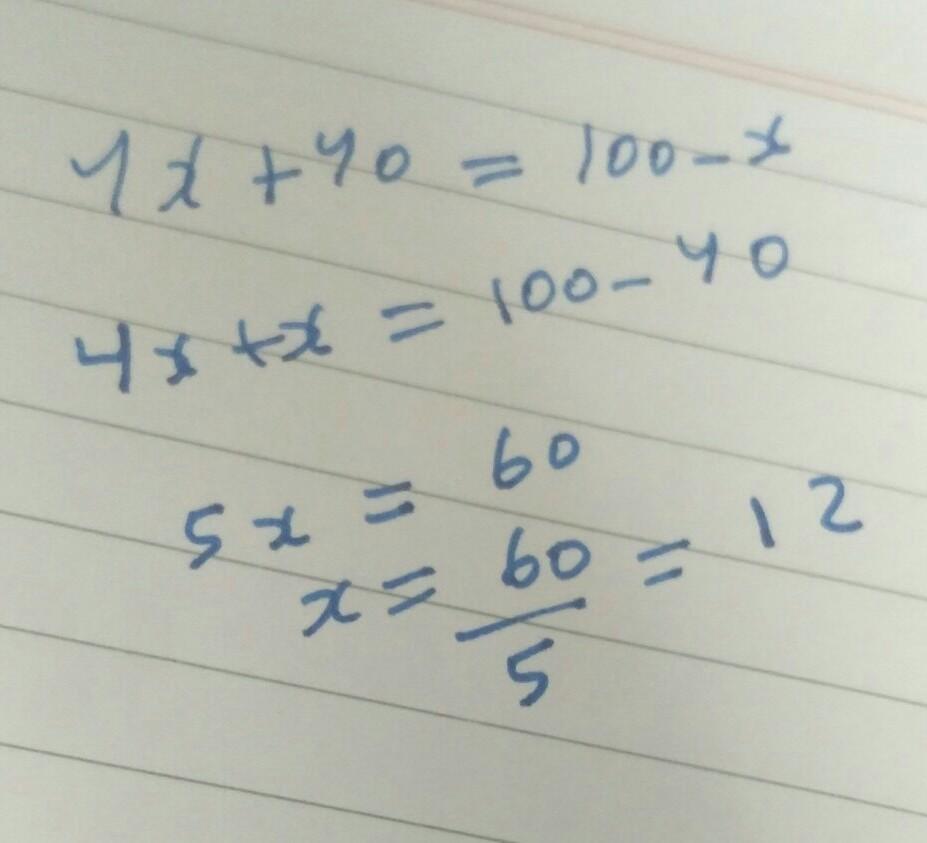 4x + 40 = 100 - x
4x + x = 100 - 40
5x = 60
x = 60/5 = 12